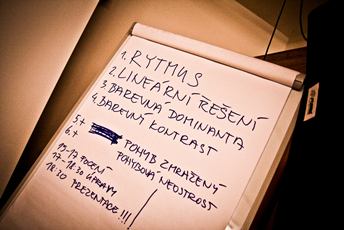 1. RYTMUS
2. LINEÁRNÍ ŘEŠENÍ
3. BAREVNÁ DOMINANTA
4. BAREVNÝ KONTRAST
5+ POHYB ZMRAŽENÝ
6+ POHYBOVÁ NEOSTROST
15-17 FOCENÍ
17-18:30 ÚPRAVY
18:30 PREZENTACE!!!